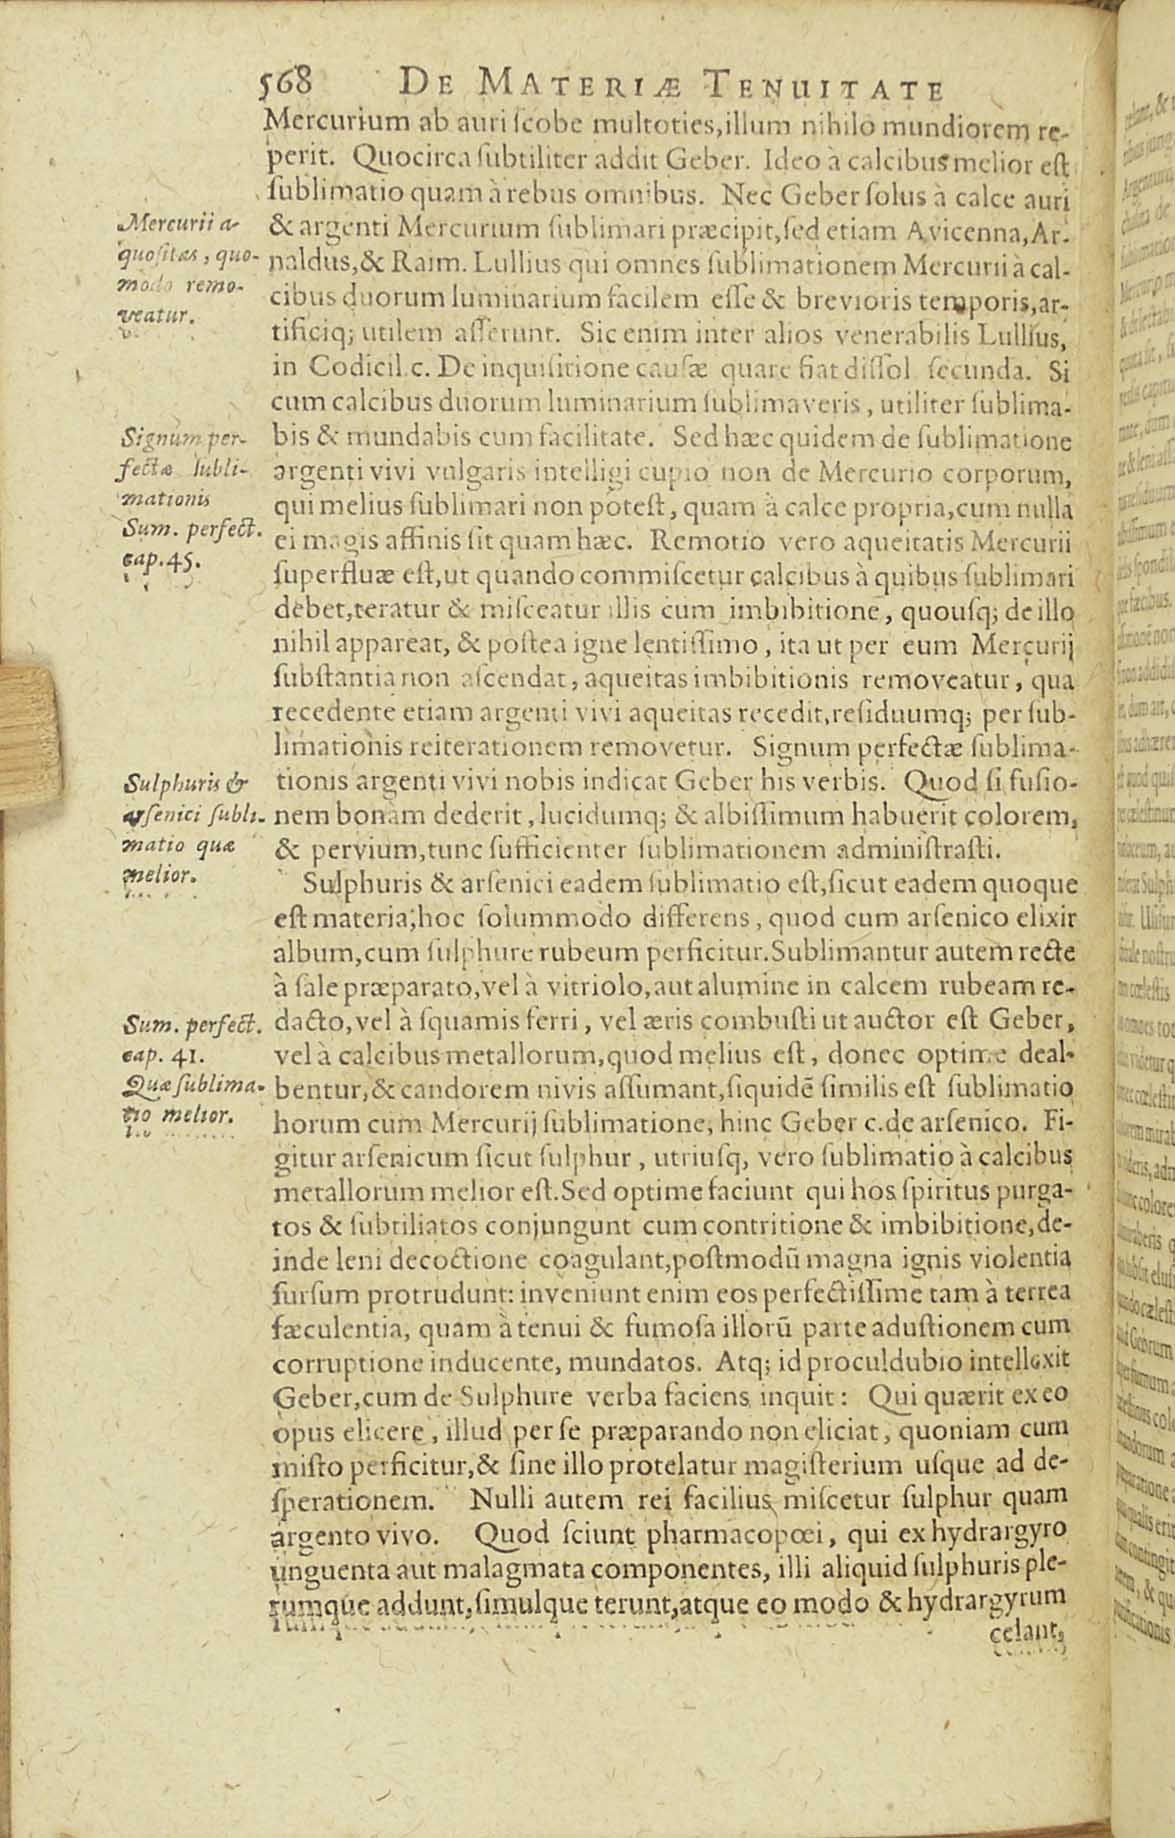 568 DE MATERIÆ TENUITATE
Mercurium ab auri ſcobe multoties, illum nihilo mundiorem re-
perit. Quocirca ſubtiliter addit Geber. Ideo à calcibus melior eſt
ſublimatio quam à rebus omnibus. Nec Geber ſolus à calce auri
& argenti Mercurium ſublimari præcipit, ſed etiam Avicenna, Ar-
naldus, & Raim. Lullius qui omnes ſublimationem Mercurii à cal-
cibus duorum luminarium facilem eſſe & brevioris temporis, ar-
tificiq; utilem aſſerunt. Sic enim inter alios venerabilis Lullius,
in Codicil. c. De inquiſitione cauſæ quare fiat diſſol ſecunda. Si
cum calcibus duorum luminarium ſublimaveris, utiliter ſublima-
bis & mundabis cum facilitate. Sed hæc quidem de ſublimatione
argenti vivi vulgaris intelligi cupio non de Mercurio corporum,
qui melius ſublimari non poteſt, quam à calce propria, cum nulla
ei magis affinis ſit quam hæc. Remotio vero aqueitatis Mercurii
ſuperfluæ eſt, ut quando commiſcetur calcibus à quibus ſublimari
debet, teratur & miſceatur illis cum imbibitione, quouſq; de illo
nihil appareat, & poſtea igne lentiſſimo, ita ut per eum Mercurij
ſubſtantia non aſcendat, aqueitas imbibitionis removeatur, qua
recedente etiam argenti vivi aqueitas recedit, reſiduumq; per ſub-
limationis reiterationem removetur. Signum perfectæ ſublima-
tionis argenti vivi nobis indicat Geber his verbis. Quod ſi fuſio-
nem bonam dederit, lucidumq; & albiſſimum habuerit colorem,
& pervium, tunc ſufficienter ſublimationem adminiſtraſti.
Sulphuris & arſenici eadem ſublimatio eſt, ſicut eadem quoque
eſt materia; hoc ſolummodo differens, quod cum arſenico elixir
album, cum ſulphure rubeum perficitur. Sublimantur autem recte
à ſale præparato, vel à vitriolo, aut alumine in calcem rubeam re-
dacto, vel à ſquamis ferri, vel æris combuſti ut auctor eſt Geber,
vel à calcibus metallorum, quod melius eſt, donec optime deal-
bentur, & candorem nivis aſſumant, ſiquidē ſimilis eſt ſublimatio
horum cum Mercurij ſublimatione, hinc Geber c. de arſenico. Fi-
gitur arſenicum ſicut ſulphur, utriuſq, vero ſublimatio à calcibus
metallorum melior eſt. Sed optime faciunt qui hos ſpiritus purga-
tos & ſubtiliatos conjungunt cum contritione & imbibitione, de-
inde leni decoctione coagulant, poſtmodū magna ignis violentia
ſurſum protrudunt: inveniunt enim eos perfectiſſime tam à terrea
fæculentia, quam à tenui & fumoſa illorū parte aduſtionem cum
corruptione inducente, mundatos. Atq; id proculdubio intellexit
Geber, cum de Sulphure verba faciens inquit: Qui quærit ex eo
opus elicere, illud per ſe præparando non eliciat, quoniam cum
miſto perficitur, & ſine illo protelatur magiſterium uſque ad de-
ſperationem. Nulli autem rei facilius miſcetur ſulphur quam
argento vivo. Quod ſciunt pharmacopœi, qui ex hydrargyro
unguenta aut malagmata componentes, illi aliquid ſulphuris ple-
rumque addunt, ſimulque terunt, atque eo modo & hydrargyrum
celant,
Mercurii a-
quoſitas, quo-
modo remo-
veatur.
Signum per-
fectæ ſubli-
mationis
Sum. perfect.
cap. 45.
Sulphuris &
arſenici ſubli-
matio quæ
melior.
Sum. perfect.
cap. 41.
Quæ ſublima-
tio melior.